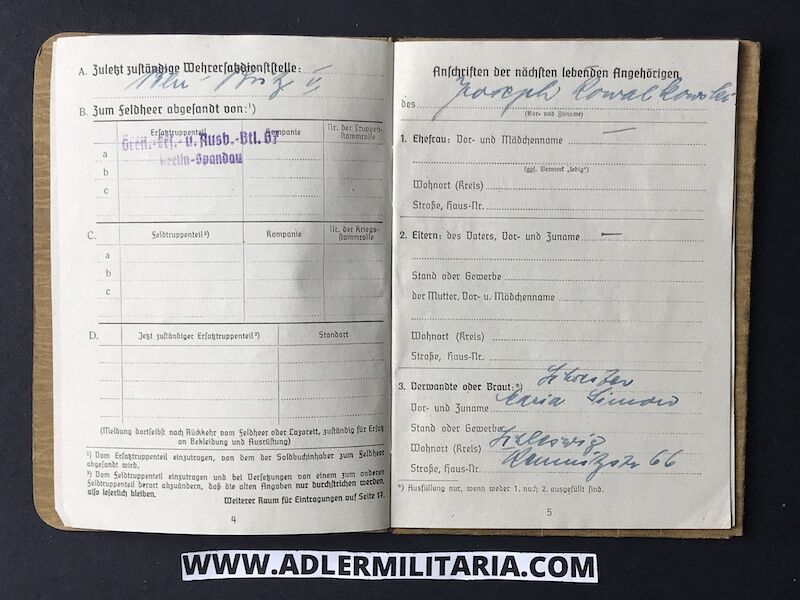 A. Zuletzt zuständige Wehrersatzdienststelle:
B. Zum Feldheer abgesandt von:¹)
Ersatztruppenteil Kompanie Nr. der Truppenstammrolle
a Gren.-Ers.- u. Ausb.-Btl. 67
b Berlin-Spandau
c
C. Feldtruppenteil²) Kompanie Nr. der Kriegsstammrolle
a
b
c
D. Jetzt zuständiger Ersatztruppenteil²) Standort
(Meldung dortselbst nach Rückkehr vom Feldheer oder Lazarett, zuständig für Ersatz
an Bekleidung und Ausrüstung)
¹) Vom Ersatztruppenteil einzutragen, von dem der Soldbuchinhaber zum Feldheer
abgesandt wird.
²) Vom Feldtruppenteil einzutragen und bei Versetzungen von einem zum anderen
Feldtruppenteil derart abzuändern, daß die alten Angaben nur durchstrichen werden,
also leserlich bleiben.
Weiterer Raum für Eintragungen auf Seite 17.
4
Anschriften der nächsten lebenden Angehörigen
des Joseph Kowalkowski
(Vor- und Zuname)
1. Ehefrau: Vor- und Mädchenname —
(ggf. Vermerk „ledig")
Wohnort (Kreis)
Straße, Haus-Nr.
2. Eltern: des Vaters, Vor- und Zuname —
Stand oder Gewerbe
der Mutter, Vor- u. Mädchenname
Wohnort (Kreis)
Straße, Haus-Nr.
3. Verwandte oder Braut:*) Schwester
Vor- und Zuname Maria Simon
Stand oder Gewerbe
Wohnort (Kreis) Schleswig
Straße, Haus-Nr. 66
*) Ausfüllung nur, wenn weder 1. noch 2. ausgefüllt sind.
5
WWW.ADLERMILITARIA.COM